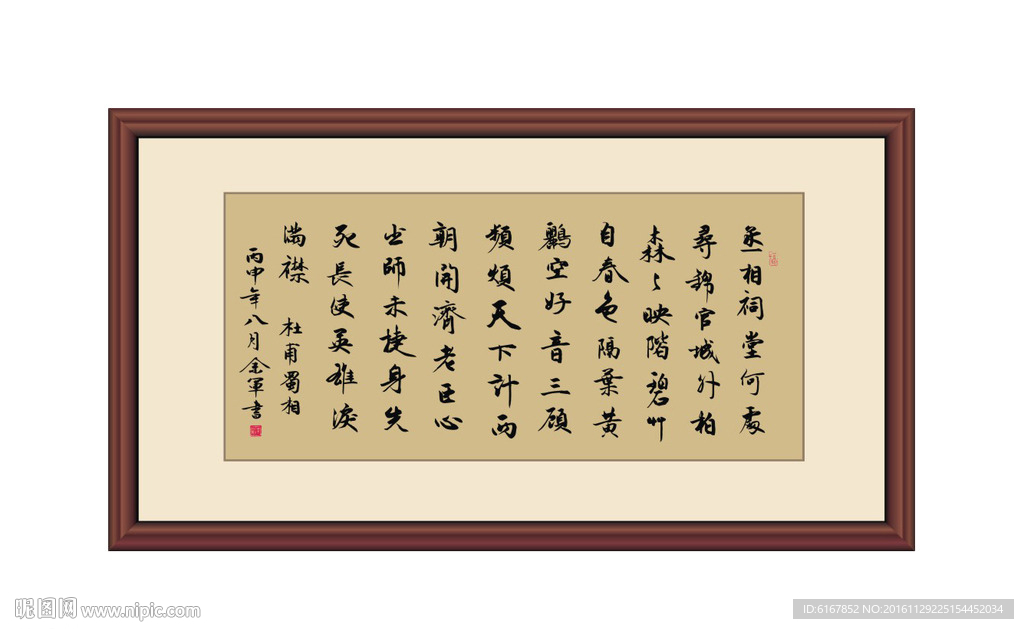 丞相祠堂何處
尋錦官城外柏
森々映階碧艸
自春色隔葉黃
鸝空好音三顧
頻煩天下計兩
朝開濟老臣心
出師未捷身先
死長使英雄淚
滿襟 杜甫蜀相
丙申年八月金軍書
昵图网 www.nipic.com
ID:6167852 NO:20161129225154452034